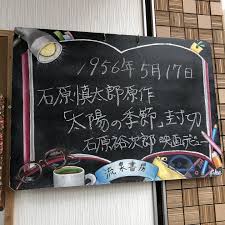 1956年5月17日
石原慎太郎原作
「太陽の季節」封切
石原裕次郎映画デビュー
流泉書房